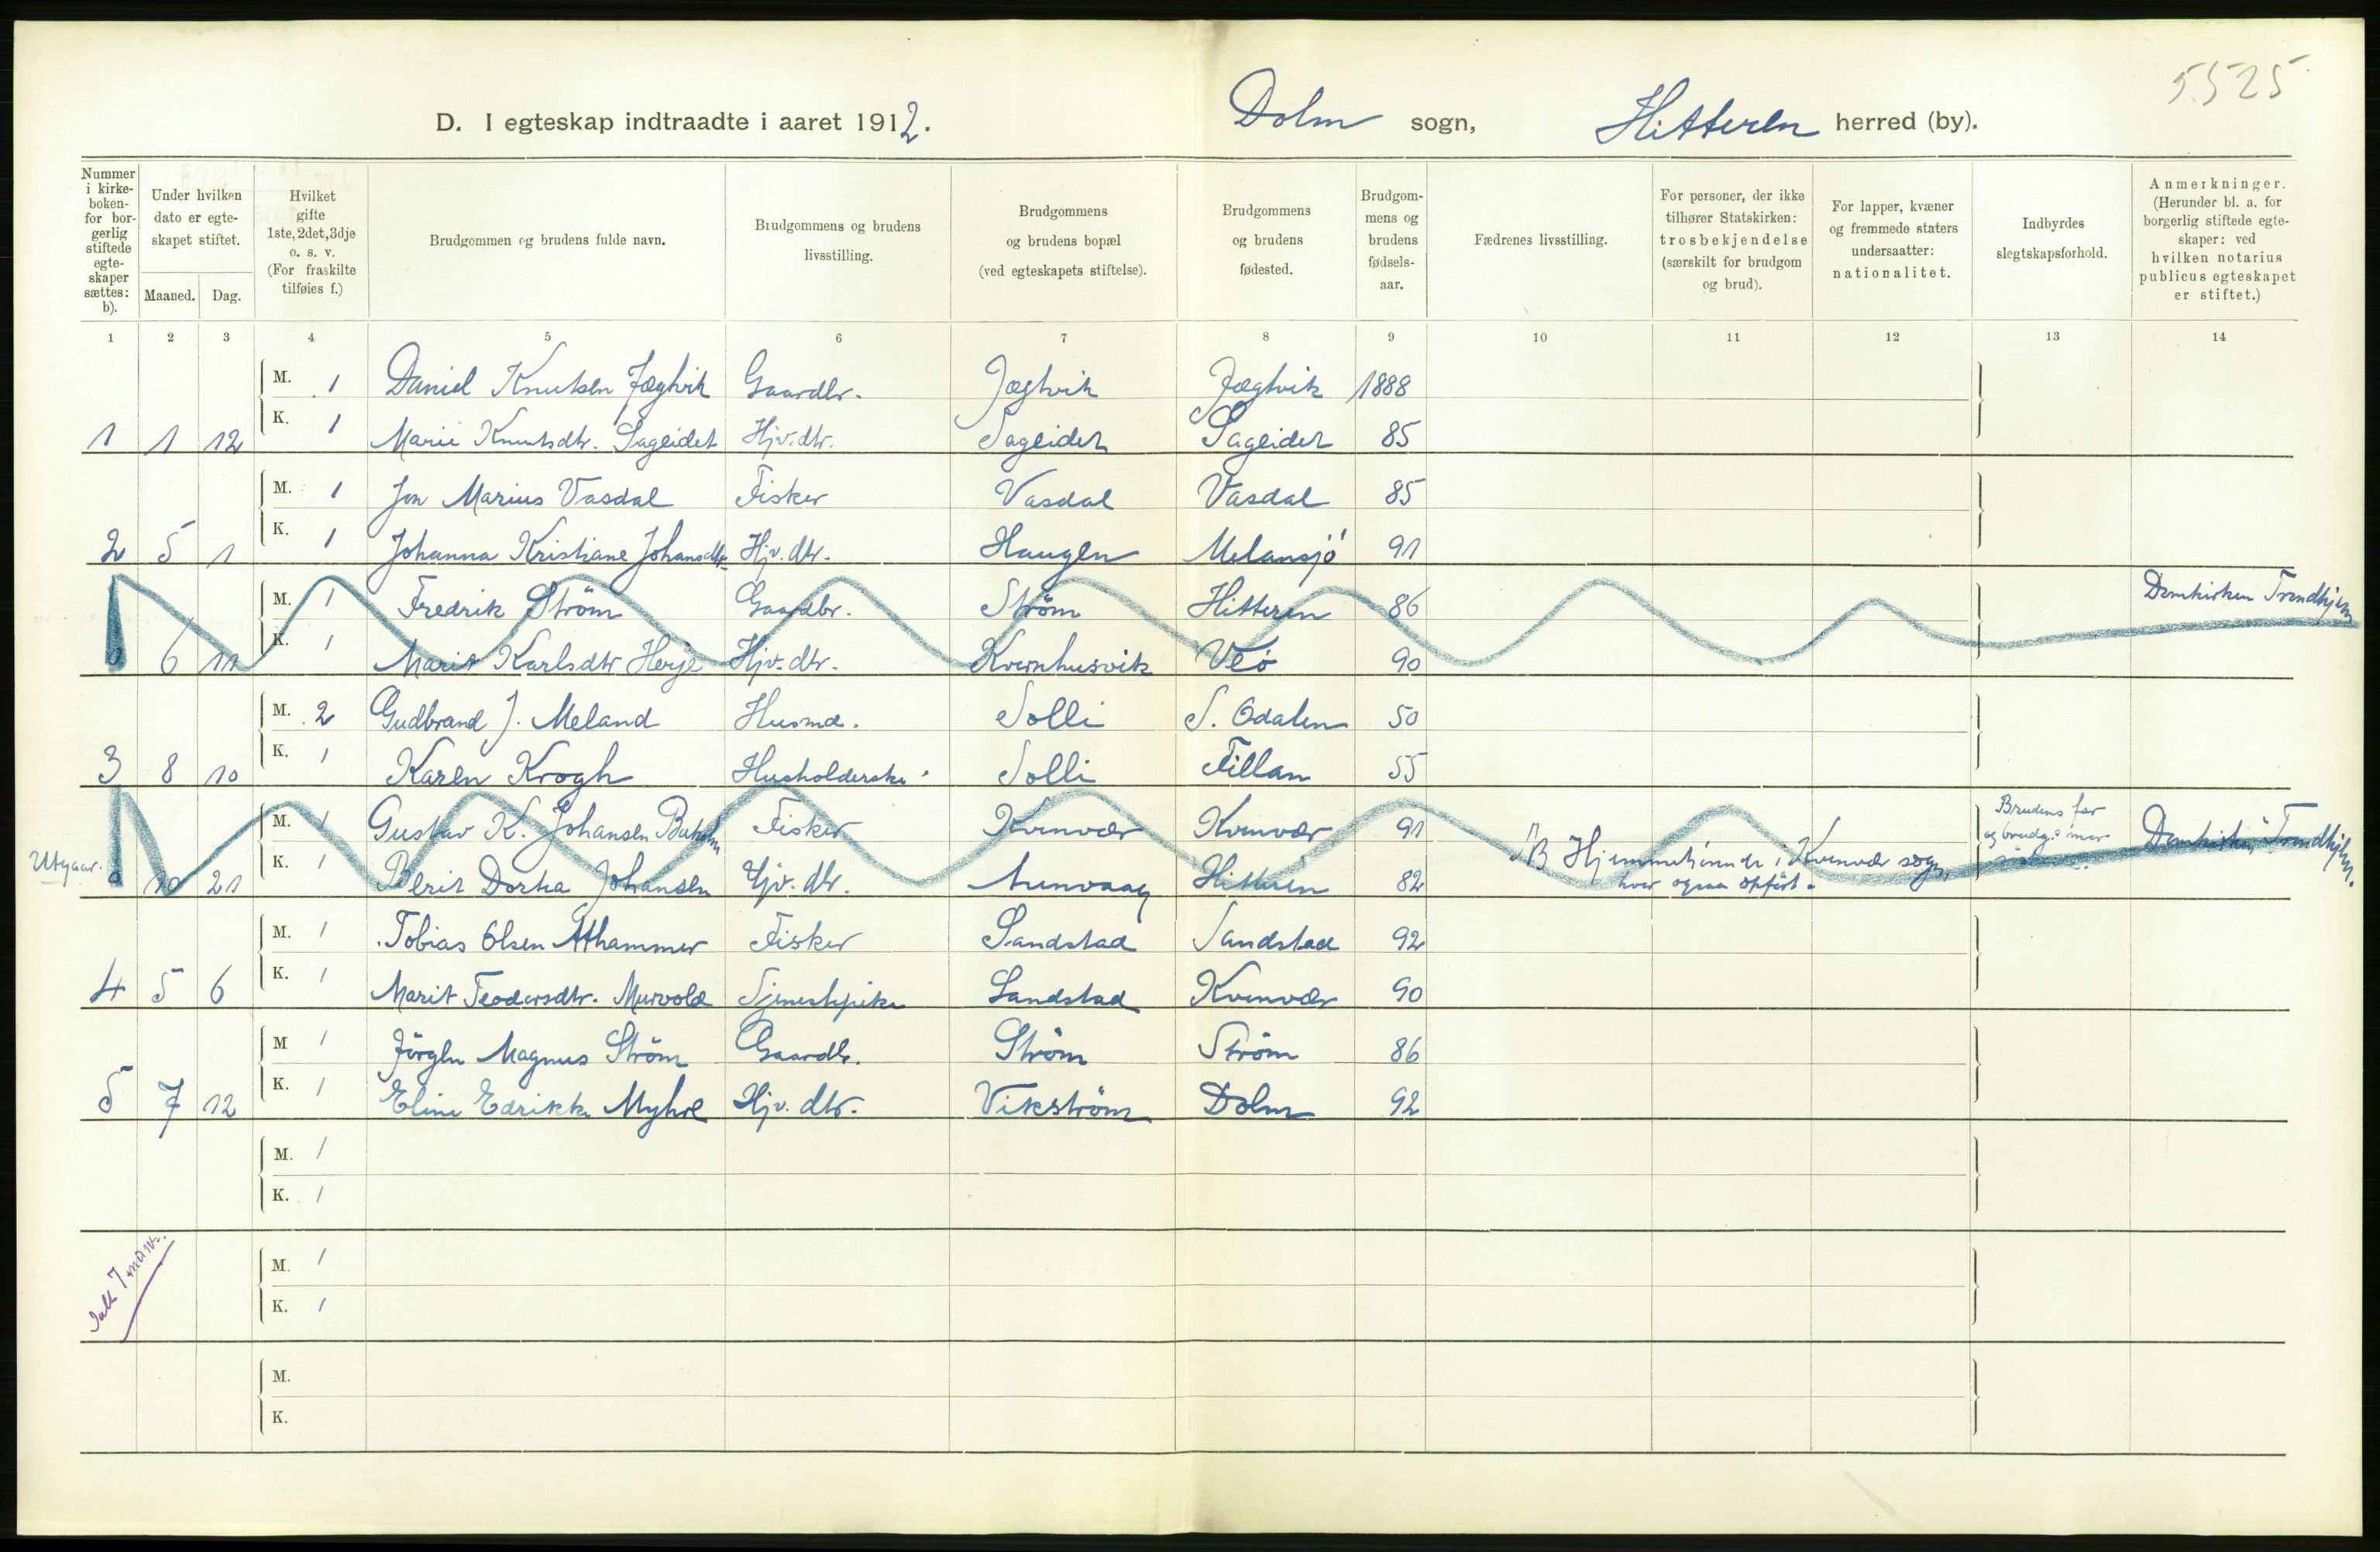 5525
D. I egteskap indtraadte i aaret 1912. Dolm sogn, Hitteren herred (by).
Nummer i kirkeboken- for borgerlig stiftede egteskaper sættes: b).
Under hvilken dato er egteskapet stiftet.
Maaned. Dag.
Hvilket gifte 1ste, 2det, 3dje o. s. v. (For fraskilte tilføies f.)
Brudgommen og brudens fulde navn.
Brudgommens og brudens livsstilling.
Brudgommens og brudens bopæl (ved egteskapets stiftelse).
Brudgommens og brudens fødested.
Brudgommens og brudens fødselsaar.
Fædrenes livsstilling.
For personer, der ikke tilhører Statskirken: trosbekjendelse (særskilt for brudgom og brud).
For lapper, kvæner og fremmede staters undersaatter: nationalitet.
Indbyrdes slegtskapsforhold.
Anmerkninger. (Herunder bl. a. for borgerlig stiftede egteskaper: ved hvilken notarius publicus egteskapet er stiftet.)
1 2 3 4 5 6 7 8 9 10 11 12 13 14
M. 1 Daniel Knutsen Jægtvik Gaardbr. Jægtvik Jægtvik 1888
1 1 12 K. 1 Marie Knutsdtr. Sageidet Hjv. dtr. Sageidet Sageidet 85
M. 1 Jon Marius Vasdal Fisker Vasdal Vasdal 85
2 5 1 K. 1 Johanna Kristiane Johansdtr. Hjv. dtr. Haugen Melansjö 91
M. 1 Fredrik Ström Gaardbr. Ström Hitteren 86 Domkirken Trondhjem
6 11 K. 1 Marit Karlsdtr Herje Hjv. dtr. Kvernhusvik Veö 90
M. 2 Gudbrand J. Meland Husmd. Solli S. Odalen 50
3 8 10 K. 1 Karen Krogh Husholderske Solli Fillan 55
M. 1 Gustav K. Johansen Fisker Kvenvær Kvenvær 91 Brudens far og brudg.s mor Domkirken, Trondhjem.
Utgaar. 10 21 K. 1 Berit Dortea Johansen Hjv. dtr. Hitteren 82 NB Hjemmehörende i Kvenvær sogn, hvor ogsaa opfört.
M. 1 Tobias Olsen Fisker Sandstad Sandstad 92
4 5 6 K. 1 Marit Teodorsdtr. Murvold Tjenestepike Sandstad Kvenvær 90
M 1 Jörgen Magnus Ström Gaardbr. Ström Ström 86
5 7 12 K. 1 Eline Edrikke Myhre Hjv. dtr. Vikström Dolm 92
M. 1
K. 1
M. 1
K. 1
M.
K.